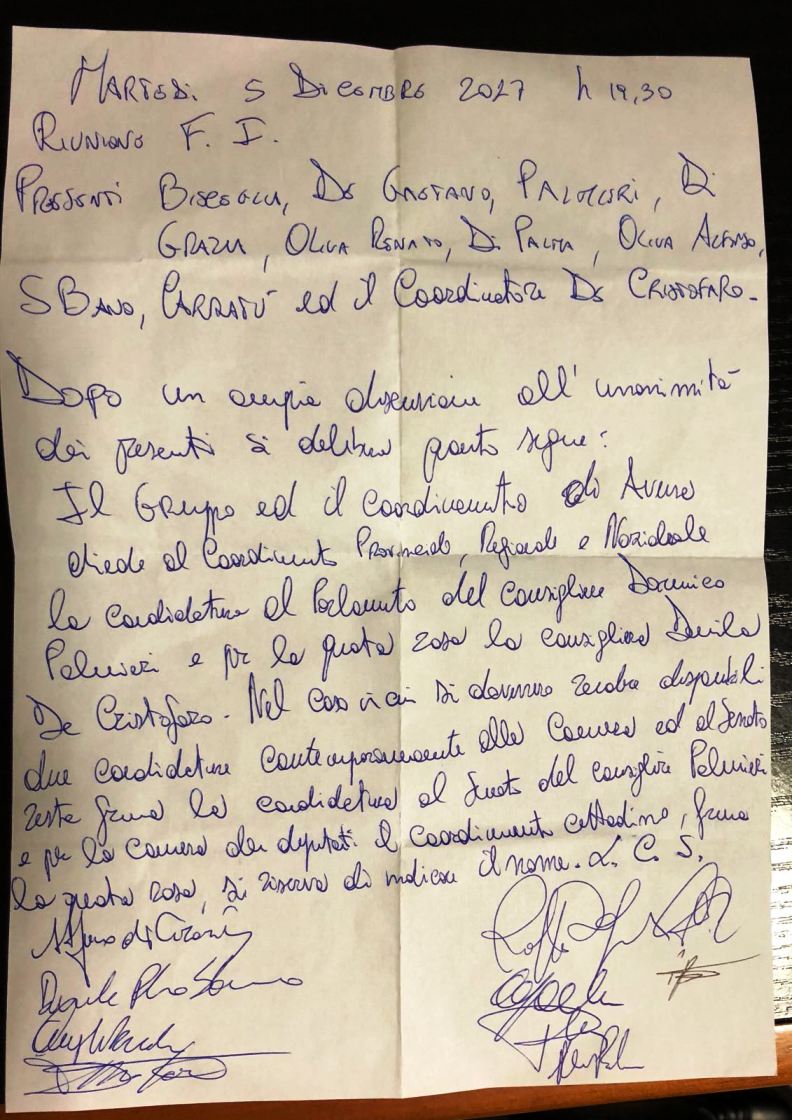 MARTEDì 5 DICEMBRE 2017 h 19,30
RIUNIONE F. I.
PRESENTI BISCEGLIA, DE GAETANO, PALMIERI, DI
GRAZIA, OLIVA RENATO, DI PALMA, OLIVA ALFONSO,
SBANO, CARRATÙ ed il Coordinatore DE CRISTOFARO.
Dopo un ampia discussione all'unanimità
dei presenti si delibera quanto segue:
Il Gruppo ed il coordinamento di Aversa
chiede al Coordinamento Provinciale, Regionale e Nazionale
la candidatura al Parlamento del consigliere Domenico
Palmieri e per la quota rosa la consigliera Danila
De Cristofaro. Nel caso in cui si dovessero rendere disponibili
due candidature contemporaneamente alla Camera ed al Senato
resta ferma la candidatura al Senato del consigliere Palmieri
e per la camera dei deputati il coordinamento cittadino, ferma
la quota rosa, si riserva di indicare il nome. L. C. S.